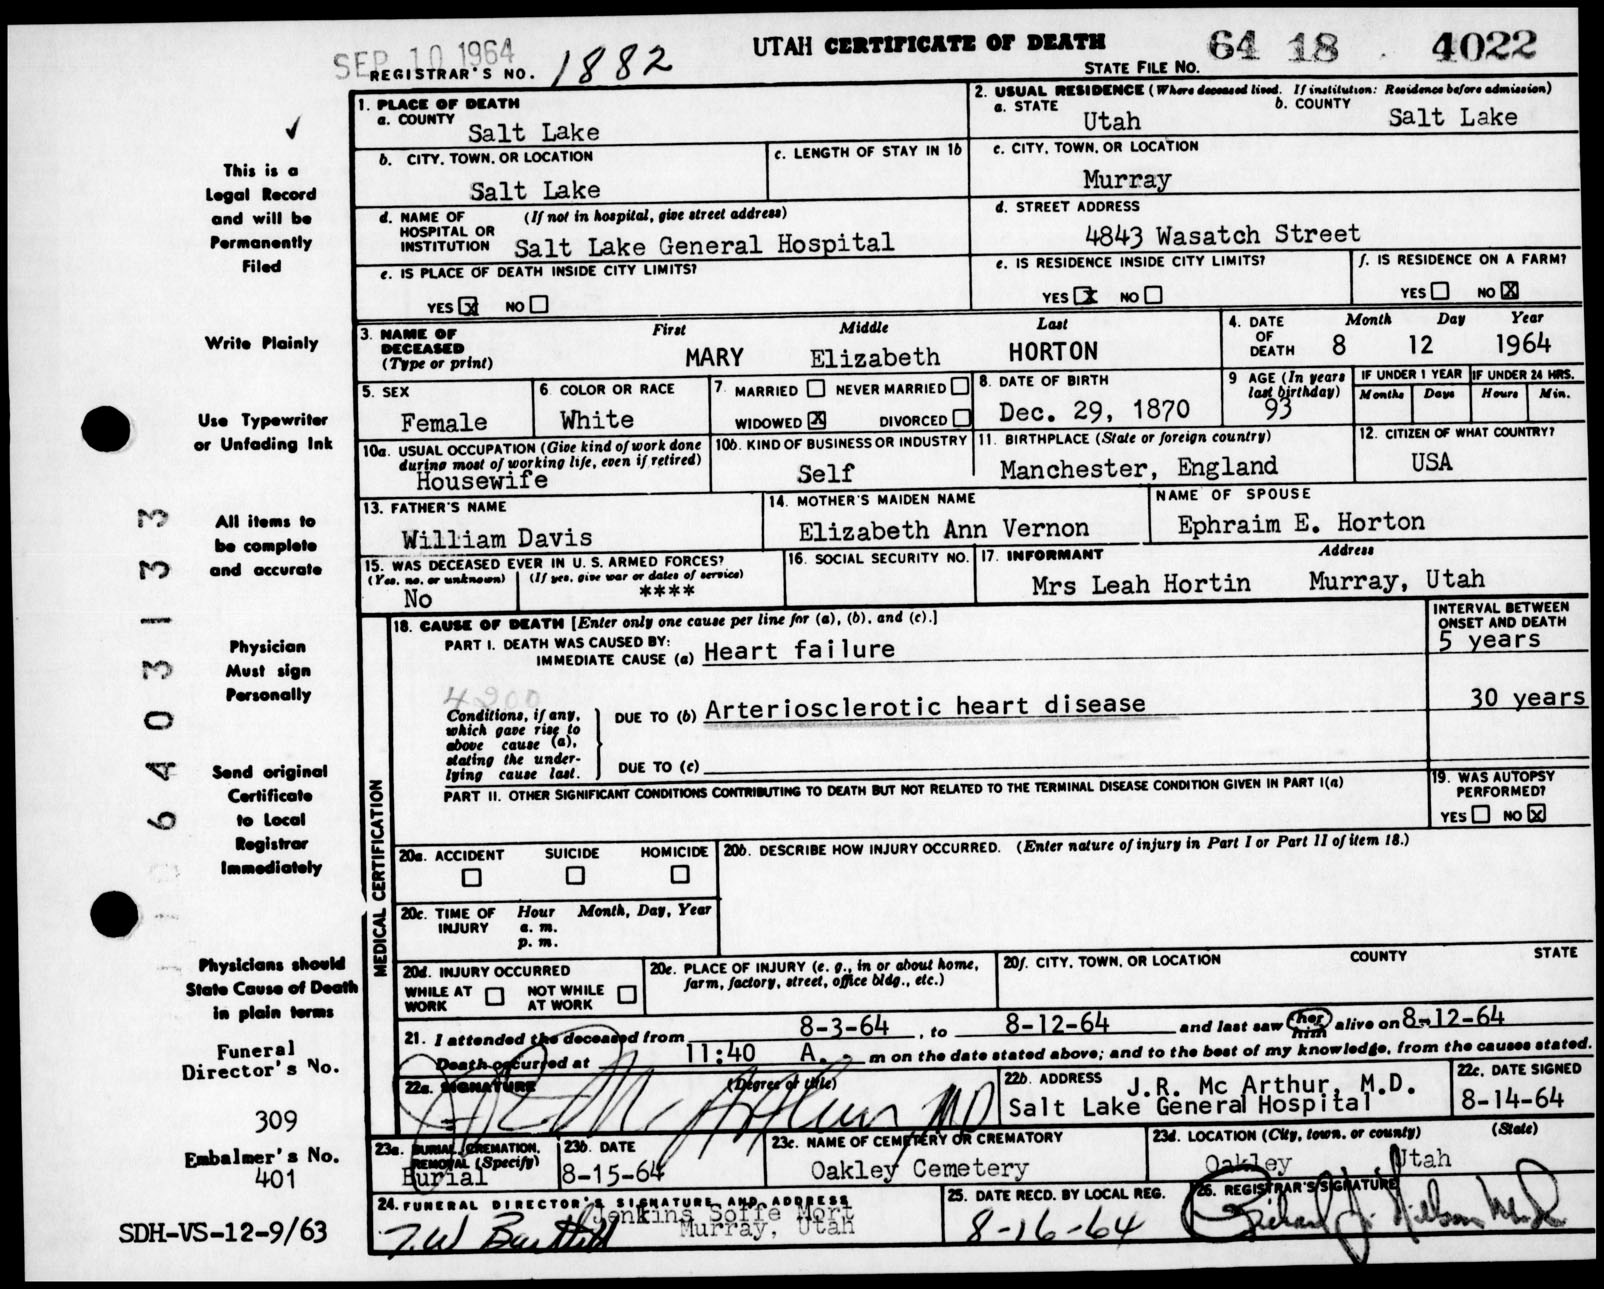 SEP 10 1964
REGISTRAR'S NO. 1882
UTAH CERTIFICATE OF DEATH
STATE FILE NO. 64 18 4022
This is a
Legal Record
and will be
Permanently
Filed
Write Plainly
Use Typewriter
or Unfading Ink
All items to
be complete
and accurate
Physician
Must sign
Personally
Send original
Certificate
to Local
Registrar
Immediately
Physicians should
State Cause of Death
in plain terms
Funeral
Director's No.
309
Embalmer's No.
401
SDH-VS-12-9/63
6403133
1. PLACE OF DEATH
a. COUNTY
Salt Lake
2. USUAL RESIDENCE (Where deceased lived. If institution: Residence before admission)
a. STATE
Utah
b. COUNTY
Salt Lake
b. CITY, TOWN, OR LOCATION
Salt Lake
c. LENGTH OF STAY IN 1b
c. CITY, TOWN, OR LOCATION
Murray
d. NAME OF (If not in hospital, give street address)
HOSPITAL OR
INSTITUTION Salt Lake General Hospital
d. STREET ADDRESS
4843 Wasatch Street
e. IS PLACE OF DEATH INSIDE CITY LIMITS?
YES X NO
e. IS RESIDENCE INSIDE CITY LIMITS?
YES X NO
f. IS RESIDENCE ON A FARM?
YES NO X
3. NAME OF
DECEASED
(Type or print)
First Middle Last
MARY Elizabeth HORTON
4. DATE
OF
DEATH
Month Day Year
8 12 1964
5. SEX
Female
6. COLOR OR RACE
White
7. MARRIED NEVER MARRIED
WIDOWED X DIVORCED
8. DATE OF BIRTH
Dec. 29, 1870
9 AGE (In years
last birthday)
93
IF UNDER 1 YEAR
Months Days
IF UNDER 24 HRS.
Hours Min.
10a. USUAL OCCUPATION (Give kind of work done
during most of working life, even if retired)
Housewife
10b. KIND OF BUSINESS OR INDUSTRY
Self
11. BIRTHPLACE (State or foreign country)
Manchester, England
12. CITIZEN OF WHAT COUNTRY?
USA
13. FATHER'S NAME
William Davis
14. MOTHER'S MAIDEN NAME
Elizabeth Ann Vernon
NAME OF SPOUSE
Ephraim E. Horton
15. WAS DECEASED EVER IN U. S. ARMED FORCES?
(Yes, no, or unknown) (If yes, give war or dates of service)
No ****
16. SOCIAL SECURITY NO.
17. INFORMANT Address
Mrs Leah Hortin Murray, Utah
MEDICAL CERTIFICATION
18. CAUSE OF DEATH [Enter only one cause per line for (a), (b), and (c).]
PART I. DEATH WAS CAUSED BY:
IMMEDIATE CAUSE (a) Heart failure
INTERVAL BETWEEN
ONSET AND DEATH
5 years
4200
Conditions, if any,
which gave rise to
above cause (a),
stating the under-
lying cause last.
DUE TO (b) Arteriosclerotic heart disease
30 years
DUE TO (c)
PART II. OTHER SIGNIFICANT CONDITIONS CONTRIBUTING TO DEATH BUT NOT RELATED TO THE TERMINAL DISEASE CONDITION GIVEN IN PART I(a)
19. WAS AUTOPSY
PERFORMED?
YES NO X
20a. ACCIDENT SUICIDE HOMICIDE
20b. DESCRIBE HOW INJURY OCCURRED. (Enter nature of injury in Part I or Part II of item 18.)
20c. TIME OF Hour Month, Day, Year
INJURY a. m.
p. m.
20d. INJURY OCCURRED
WHILE AT NOT WHILE
WORK AT WORK
20e. PLACE OF INJURY (e. g., in or about home,
farm, factory, street, office bldg., etc.)
20f. CITY, TOWN, OR LOCATION COUNTY STATE
21. I attended the deceased from 8-3-64, to 8-12-64 and last saw her him alive on 8-12-64
Death occurred at 11:40 A. m on the date stated above; and to the best of my knowledge, from the causes stated.
22a. SIGNATURE (Degree or title)
J R Mc Arthur, MD
22b. ADDRESS J.R. Mc Arthur, M.D.
Salt Lake General Hospital
22c. DATE SIGNED
8-14-64
23a. BURIAL, CREMATION,
REMOVAL (Specify)
Burial
23b. DATE
8-15-64
23c. NAME OF CEMETERY OR CREMATORY
Oakley Cemetery
23d. LOCATION (City, town, or county) (State)
Oakley Utah
24. FUNERAL DIRECTOR'S SIGNATURE AND ADDRESS
Jenkins Soffe Mort
Murray, Utah
25. DATE RECD. BY LOCAL REG.
8-16-64
26. REGISTRAR'S SIGNATURE